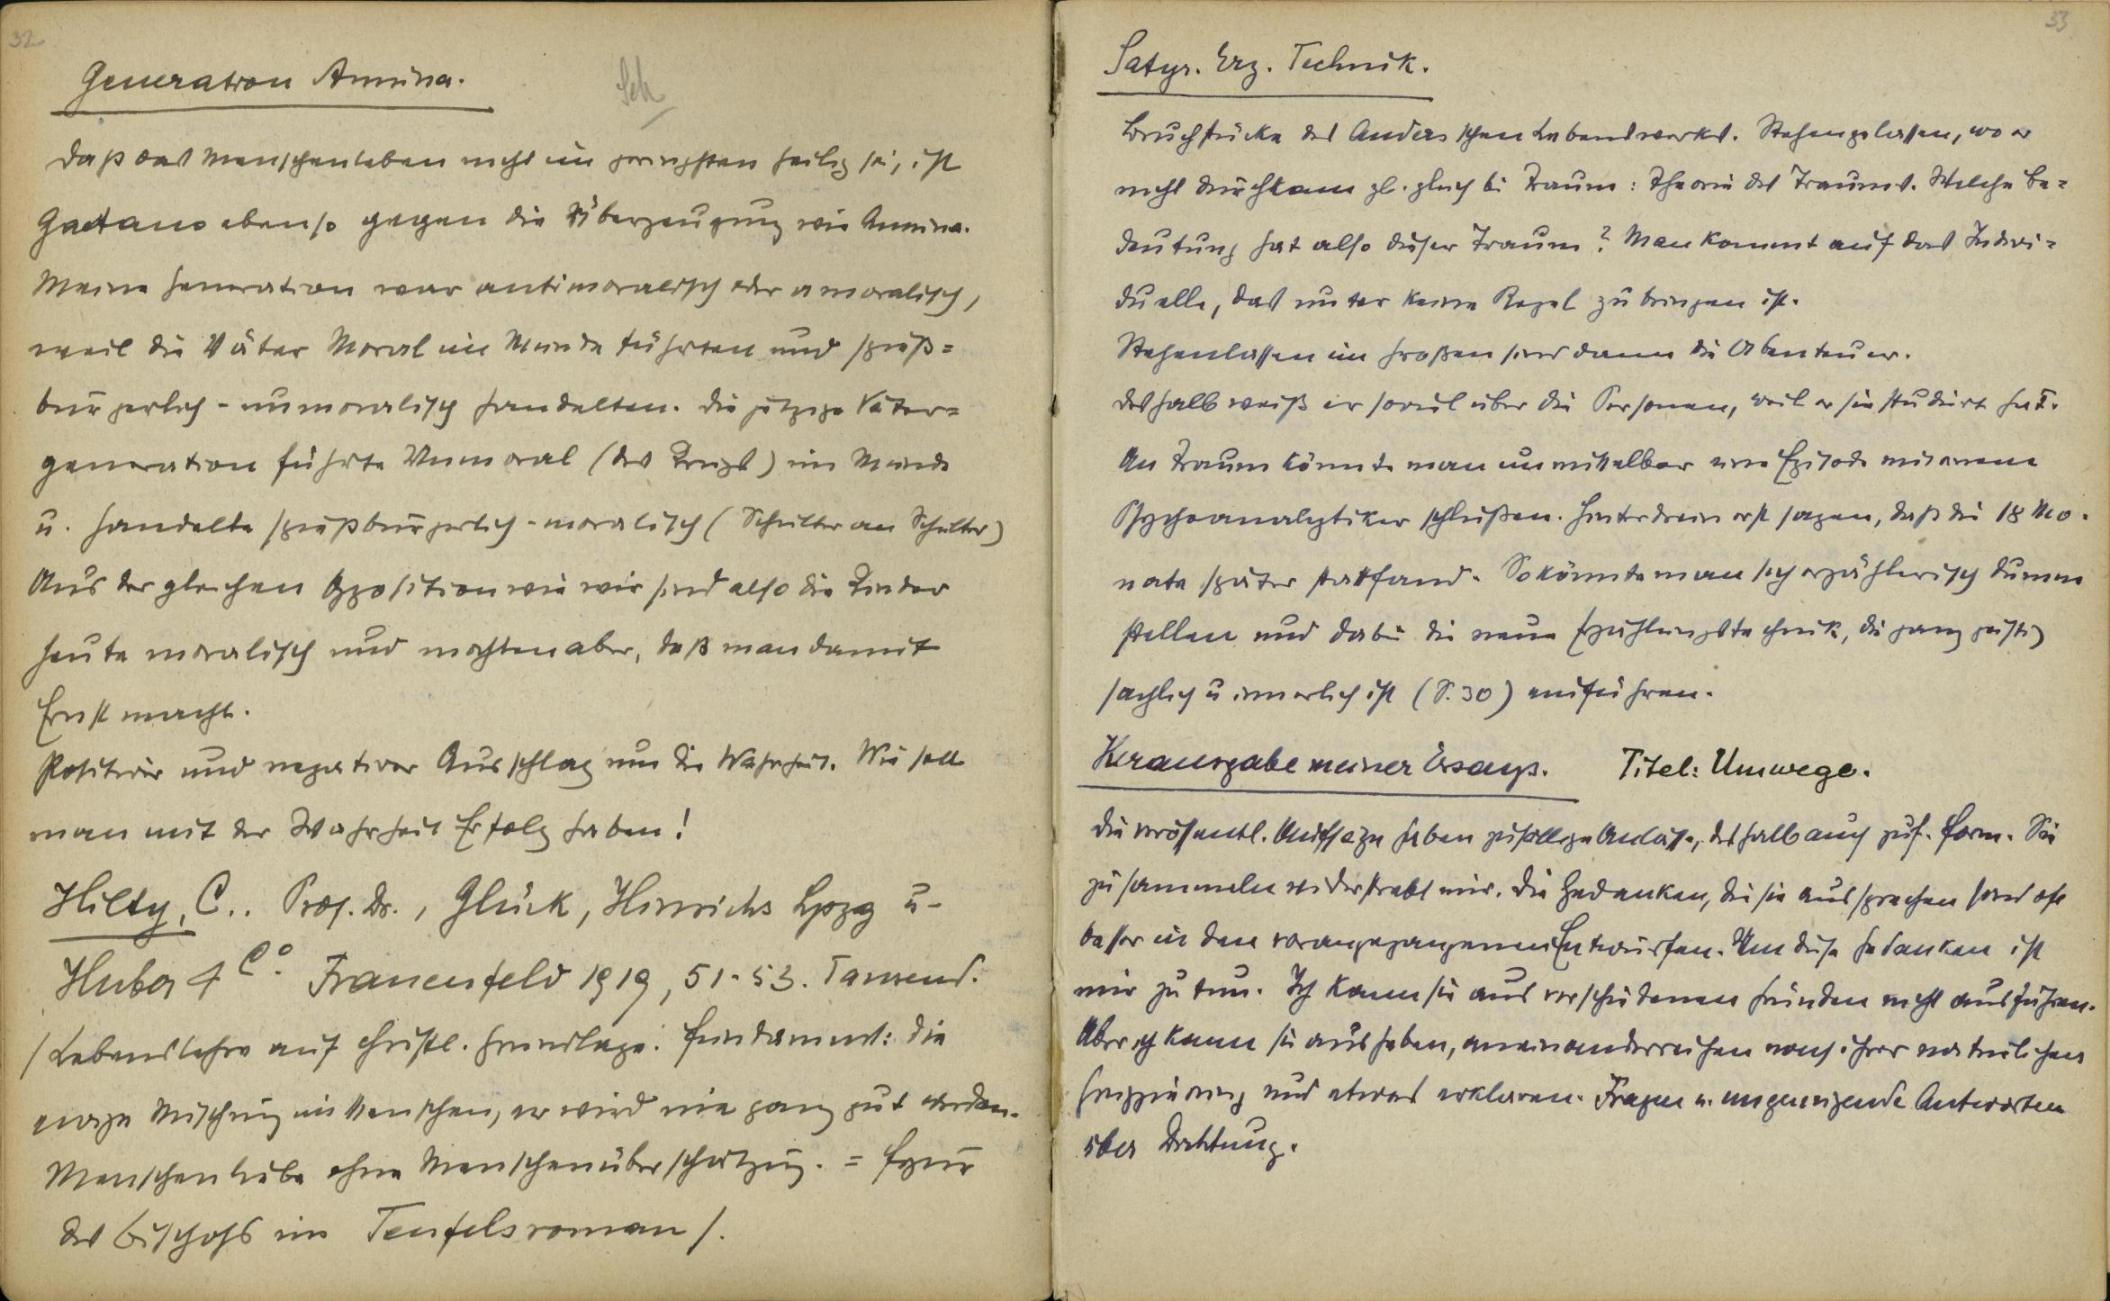 32
Generation Annina.
Sch
Daß das Menschenleben nicht im geringsten heilig sei, ist
Gaetano ebenso gegen die Überzeugung wie Annina.
Meine Generation war antimoralisch oder amoralisch,
weil die Väter Moral im Munde führten und spieß=
bürgerlich-unmoralisch handelten. Die jetzige Väter=
generation führte Unmoral (des Kriegs) im Munde
u. handelte spießbürgerlich-moralisch (Schulter an Schulter)
Aus der gleichen Opposition wie wir sind also die Kinder
heute moralisch und möchten aber, daß man damit
Ernst macht.
Positiver und negativer Ausschlag um die Wahrheit. Wie soll
man mit der Wahrheit Erfolg haben!
Hilty, C.. Prof. Dr., Glück, Hinrichs Lpzg u-
Huber & Co. Frauenfeld 1919, 51-53. Tausend.
/Lebenslehre auf christl. Grundlage. Fundament: die
ewige Mischung im Menschen, er wird nie ganz gut werden.
Menschenliebe ohne Menschenüberschätzung. = Figur
des Bischofs im Teufelsroman/.
33
Satyr. Erz. Technik.
Bruchstücke des Anders'schen Lebenswerks. Stehengelassen, wo er
nicht durchkam gl. gleich bei Traum: Theorie des Traums. Welche Be=
deutung hat also dieser Traum? Man kommt auf das Indivi=
duelle, das unter keine Regel zu bringen ist.
Stehenlassen im Großen sind dann die Abenteuer.
Deshalb weiß er soviel über die Personen, weil er sie studiert hat.
An Traum könnte man unmittelbar eine Episode mit einem
Psychoanalytiker schließen. Hinterdrein erst sagen, daß die 18 Mo-
nate später stattfand. So könnte man sich erzählerisch dumm
stellen und dabei die neue Erzählungstechnik, die ganz geistig
sachlich u innerlich ist (S. 30) einführen.
Herausgabe meiner Essays. Titel: Umwege.
Die veröffentl. Aufsätze haben zufällige Anlässe, deshalb auch zuf. Form. Sie
zu sammeln widerstrebt mir. Die Gedanken, die sie aussprechen sind oft
besser in den vorangegangenen Entwürfen. Um diese Gedanken ist
mir zu tun. Ich kann sie aus verschiedenen Gründen nicht ausführen.
Aber ich kann sie ausheben, aneinanderreihen nach ihrer natürlichen
Gruppierung und etwas erklären. Fragen u. ungenügende Antworten
über Dichtung.